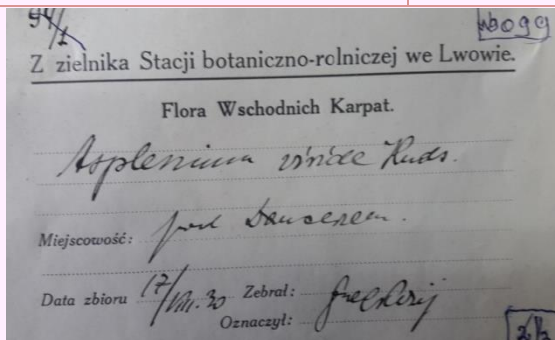 94/1
Z zielnika Stacji botaniczno-rolniczej we Lwowie.
Flora Wschodnich Karpat.
Asplenium viride Huds.
Miejscowość: pod
Data zbioru 17/VIII.30 Zebrał:
Oznaczył: